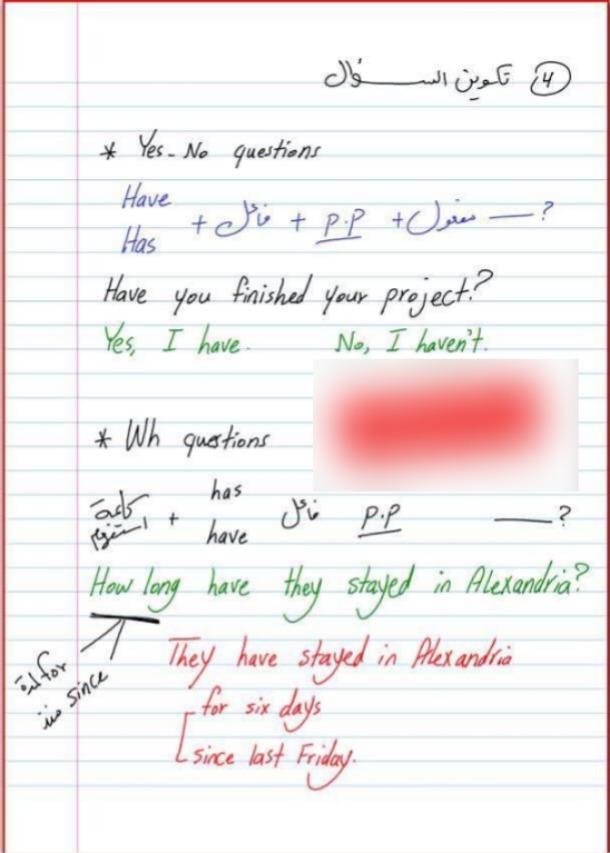 4 تكوين الســـؤال
* Yes-No questions
Have
Has + فاعل + P.P + مفعول — ?
Have you finished your project?
Yes, I have. No, I haven't.
* Wh questions
كلمة استفهام + has
have فاعل P.P — ?
How long have they stayed in Alexandria?
لمدة for
منذ since
They have stayed in Alexandria
for six days
since last Friday.